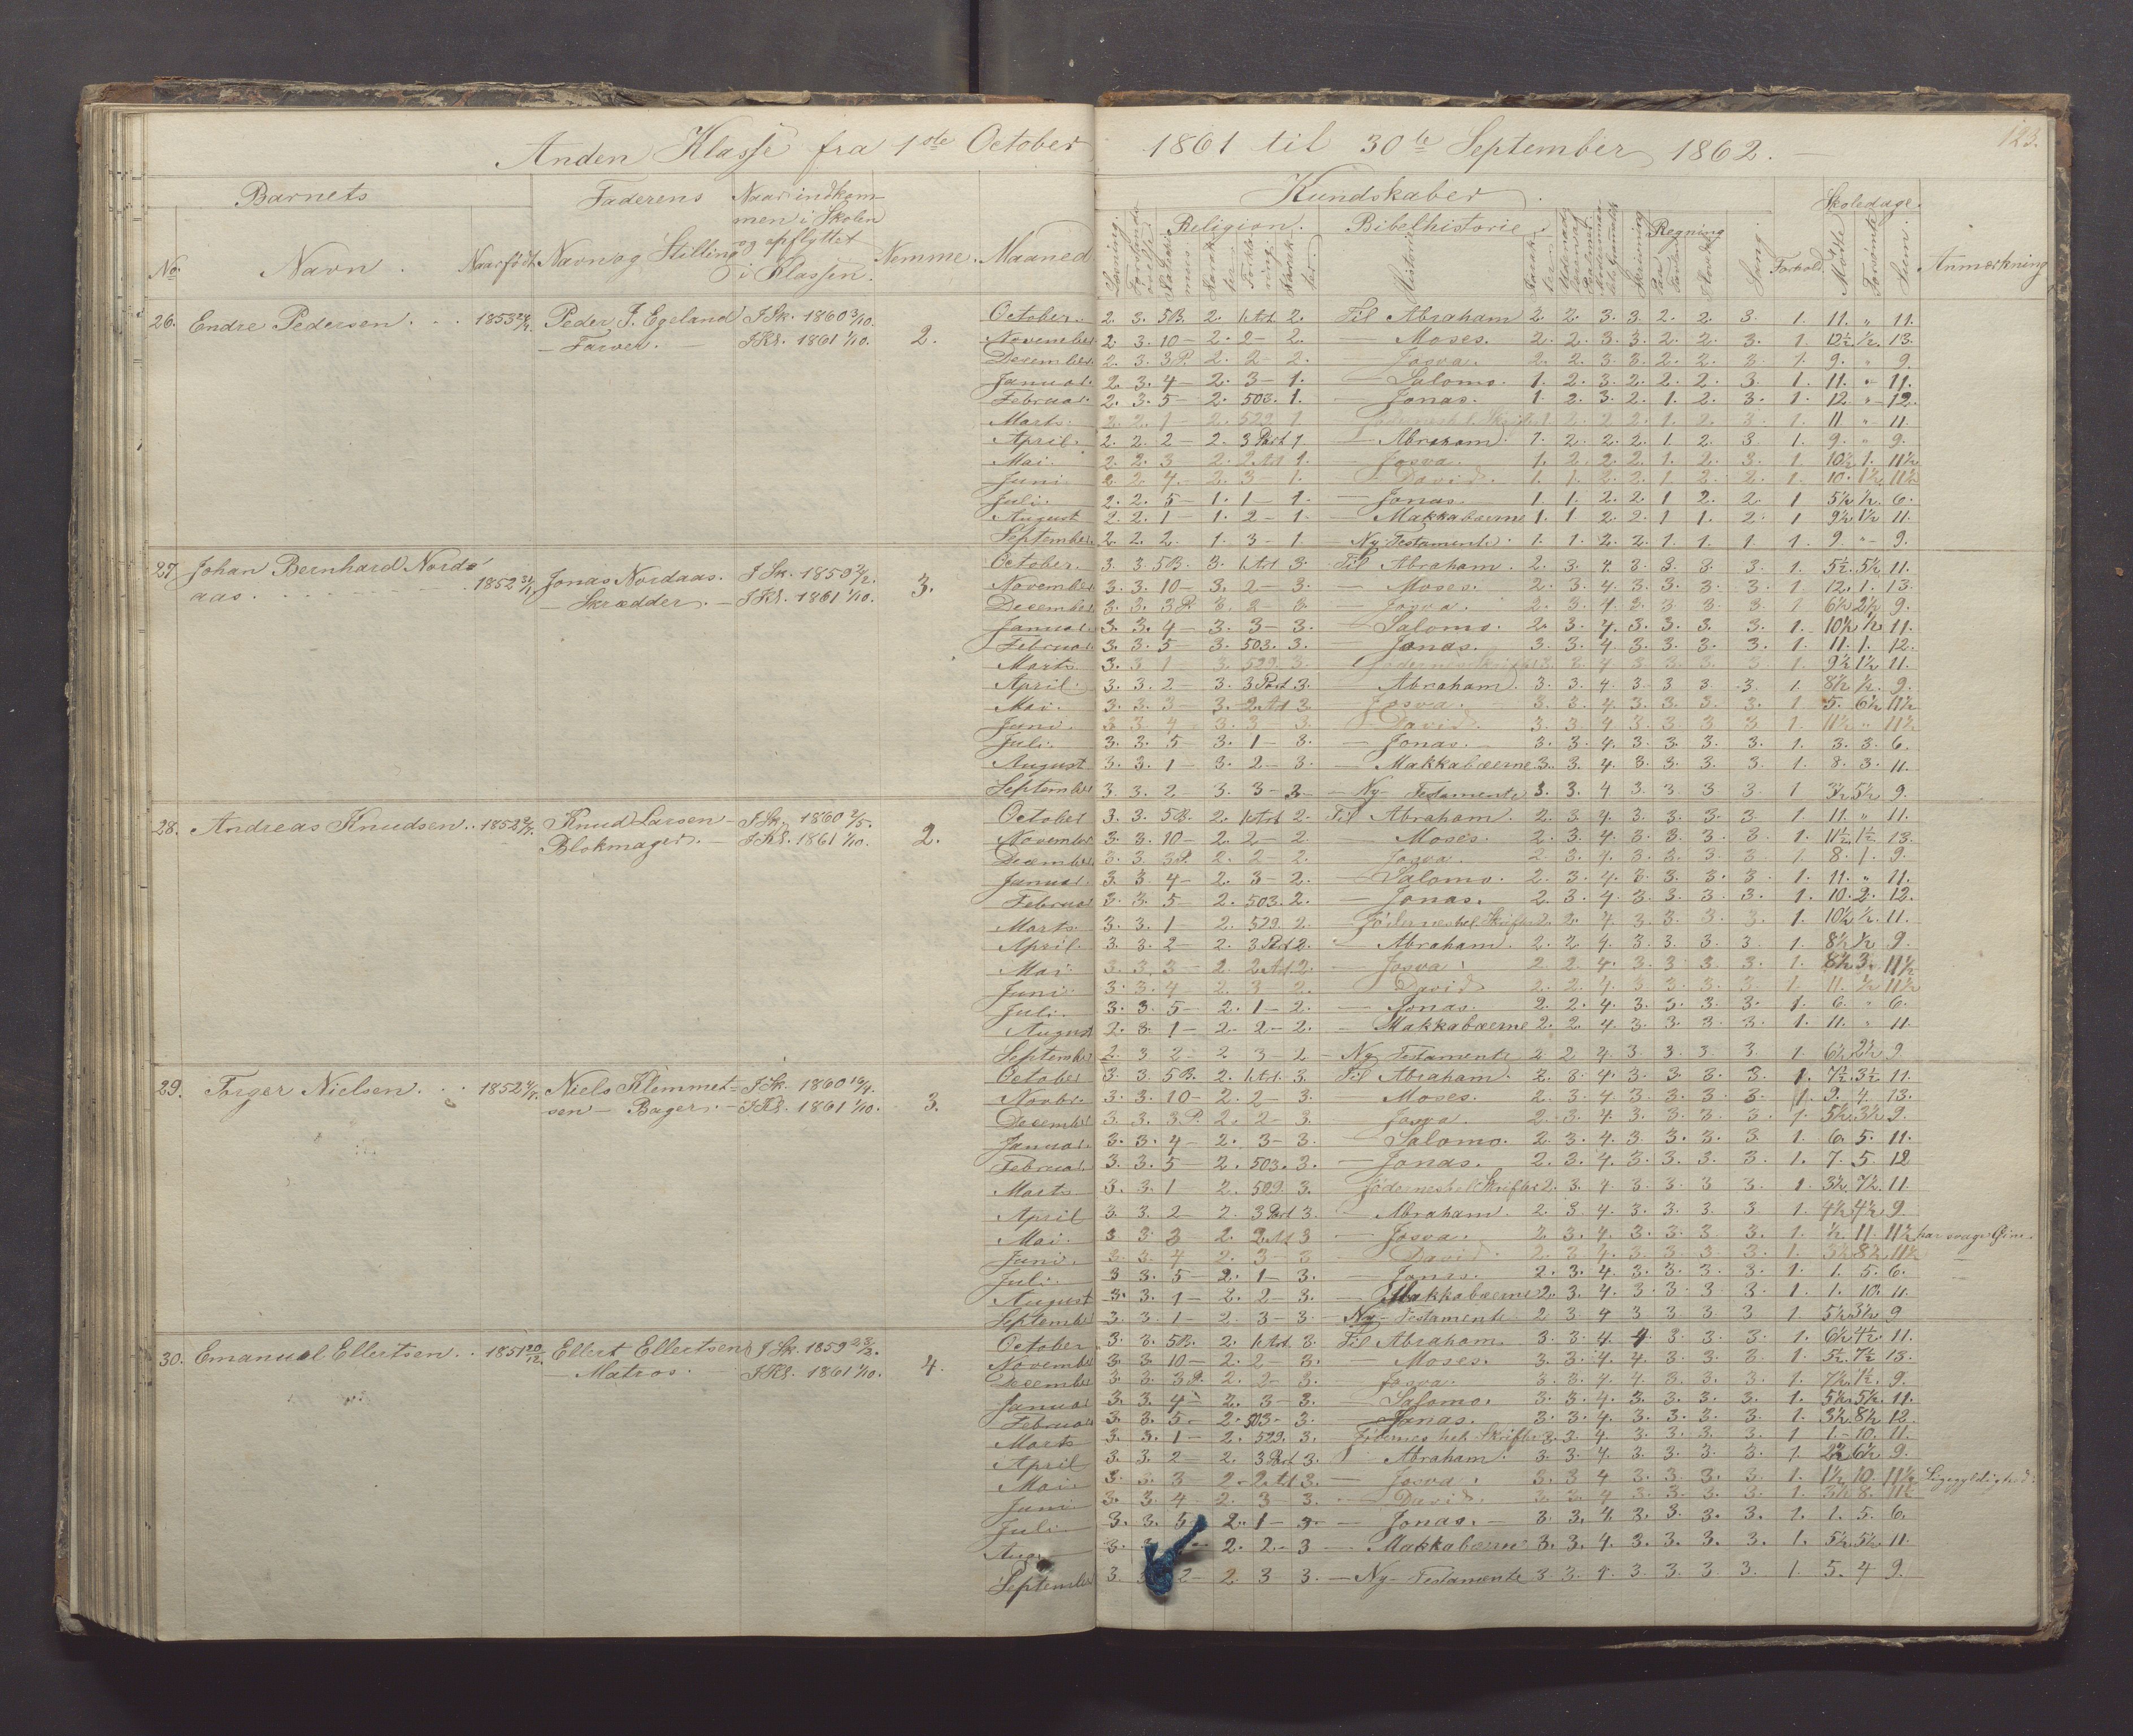 Anden Klasse fra 1ste October 1861 til 30te September 1862. —
123.
Barnets Faderens Naar indkommen i Skolen og opflyttet i Klassen. Nemme. Maaned Kundskaber Skoledage.
No. Navn. Naar født Navn og Stilling Religion. Bibelhistorie. Regning Sang. Forhold. Mødte Forsømte Sum. Anmærkning
26. Endre Pedersen. 1853 Peder J. Egeland — Farver. — I Sk. 1860 I Kl. 1861 1/10. 2.
October. 2. 3. 5B. 2. 1 Art. 2. Til Abraham 2. 2. 3. 3. 2. 2. 3. 1. 11. " 11.
November 2. 3. 10 — 2. 2 — 2. — Moses. 2. 2. 3. 3. 2. 2. 3. 1. 12½ ½. 13.
December 2. 3. 3P. 2. 2 — 2. — Josva. 2. 2. 3. 3. 2. 2. 3. 1. 9. " 9.
Januar. 2. 3. 4 — 2. 3 — 1. — Salomo. 1. 2. 3. 2. 2. 2. 3. 1. 11. " 11.
Februar. 2. 3. 5 — 2. 503. 1. — Jonas. 1. 2. 3. 2. 1. 2. 3. 1. 12 " 12.
Marts. 2. 2. 1 — 2. 529 1 1. 11 " 11.
April. 2. 2. 2 — 2. 3 Part 1. — Abraham. 1. 2. 2. 2. 1. 2. 3. 1. 9. " 9.
Mai. 2. 2. 3 — 2. 2 Art 1. — Josva. 1. 2. 2. 2. 1. 2. 3. 1. 10½ 1. 11½
Juni. 2. 2. 4 — 2. 3 — 1. — David. 1. 1. 2. 2. 1. 2. 2. 1. 10. 1½ 11½
Juli. 2. 2. 5 — 1. 1 — 1. — Jonas. 1. 1. 2. 2. 1 2. 2. 1 5½ ½. 6.
August 2. 2. 1 — 1. 2 — 1. — Makkabæerne 1. 1 2. 2. 1 1. 2. 1 9½ 1½ 11.
September. 2. 2. 2. 1. 3 — 1 — Ny Testamente. 1. 1. 2. 2. 1. 1. 1. 1. 9. " 9.
27. Johan Bernhard Nordaas. 1852 Jonas Nordaas. — Skrædder. — I Sk. 1859 I Kl. 1861 1/10. 3.
October. 3. 3. 5B. 3. 1 Art 3. Til Abraham. 2. 3. 4. 3. 3. 3. 3. 1. 5½. 5½ 11.
November 3. 3. 10 — 3. 2 — 3. — Moses. 2. 3. 4. 3. 3. 3. 3. 1. 12. 1. 13.
December 3. 3. 3P. 3. 2 — 3. — Josva. 2. 3. 4. 2. 3. 3. 3. 1 6½ 2½ 9.
Januar. 3. 3. 4 — 3. 3 — 3. — Salomo. 2. 3. 4. 3. 3. 3. 3. 1. 10½ ½ 11.
Februar. 3. 3. 5 — 3. 503. 3. — Jonas. 3. 3. 4. 3. 3. 3. 3. 1. 11. 1. 12.
Marts. 3. 3 1 — 3. 529 3. 3. 3. 4 3 3. 3. 3 1. 9½ 1½ 11.
April. 3. 3. 2 — 3. 3 Part 3. — Abraham. 3. 3. 4. 3. 3 3. 3. 1. 8½ ½. 9.
Mai. 3. 3. 3 — 3. 2 Art 3. — Josva. 3. 3. 4. 3. 3. 3. 3. 1 5. 6½ 11½
Juni. 3. 3. 4 — 3. 3 3. — David. 3. 3. 4 3. 3. 3 3 1. 11½ " 11½
Juli. 3. 3. 5 — 3. 1 — 3. — Jonas. — 3. 3. 4. 3. 3. 3. 3. 1. 3. 3. 6.
August 3. 3. 1 — 3. 2 — 3. — Makkabæerne 3. 3. 4. 3. 3. 3 3. 1. 8. 3. 11.
September 3. 3. 2 — 3. 3 — 3 — Ny Testamente 3. 3. 4 3. 3. 3 3 1 3½ 5½ 9.
28. Andreas Knudsen. 1852 Knud Larsen — Blokmager. — I Sk. 1860 2/5. I Kl. 1861 1/10. 2.
October 3. 3. 5B. 2. 1 Art 2. Til Abraham. 2. 3 4. 3. 3. 3. 3 1. 11. " 11.
November 3. 3. 10 — 2. 2 — 2. — Moses. 2. 3. 4. 3. 3. 3. 3. 1. 11½. 1½ 13.
December 3. 3. 3P. 2. 2 — 2. — Josva. 2. 3. 4. 3. 3. 3. 3 1. 8. 1. 9.
Januar. 3. 3 4 — 2. 3 — 2. — Salomo. 2. 3. 4. 3. 3. 3. 3. 1. 11. " 11.
Februar 3. 3. 5 — 2. 503. 2. — Jonas. 2. 3. 4. 3. 3. 3. 3. 1. 10. 2. 12.
Marts. 3. 3. 1 — 2. 529. 2. — Jødernes hel. Skrifter 2. 2. 4. 3 3. 3. 3. 1. 10½ ½. 11.
April. 3. 3. 2 — 2. 3 Part 2. — Abraham. 2. 2. 4. 3. 3. 3. 3. 1. 8½ ½ 9.
Mai. 3. 3. 3 — 2. 2 Art 2. — Josva. 2. 2. 4. 3. 3 3. 3. 1. 8½. 3. 11½
Juni. 3. 3. 4 — 2. 3 — 2. — David 2. 2. 4. 3 3. 3. 3. 1. 11. ½ 11½
Juli. 3. 3. 5 — 2. 1 — 2. — Jonas. 2. 2. 4. 3. 3. 3. 3. 1. 6. " 6.
August 2. 3. 1 — 2. 2 — 2. — Makkabæerne 2. 2. 4. 3. 3. 3. 3. 1. 11. " 11.
September 2. 3 2 — 2 3 — 2 — Ny Testamente 2 2 4. 3. 3. 3. 3. 1. 6½ 2½ 9
29. Nielsen. 1852 Niels Klemmetsen — Bager. — I Sk. 1860 I Kl. 1861 1/10. 3.
October 3. 3. 5B. 2. 1 Art. 3. Til Abraham. 2. 3. 4. 3. 3. 3. 3. 1. 7½. 3½ 11.
Novbr. 3. 3. 10 — 2. 2 — 3. Moses. 2. 3. 4. 3. 3. 3. 3. 1. 9. 4. 13.
December 3. 3. 3P. 2. 2 — 3. — Josva 2. 3. 4. 3. 3. 3. 3. 1. 5½ 3½ 9.
Januar. 3. 3. 4 — 2. 3 — 3. — Salomo. 2. 3. 4. 3 3. 3. 3. 1. 6. 5. 11.
Februar. 3. 3. 5 — 2. 503. 3. — Jonas. 2. 3. 4. 3. 3. 3. 3. 1. 7. 5 12
Marts 3. 3. 1 — 2. 529. 3. Jødernes hel. Skrifter 2. 3. 4. 3. 3. 3 3. 1. 3½. 7½. 11.
April 3. 3. 2 — 2. 3 Part 3. — Abraham. 2. 3 4. 3. 3. 3. 3. 1. 4½ 4½ 9.
Mai. 3 3. 3 — 2. 2 Art 3 — Josva. 2 3. 4. 3. 3. 3 3. 1. ½ 11 11½ har svage Øine.
Juni. 3. 3. 4 — 2. 3 — 3 — David 2. 3 4. 3. 3. 3 3. 1. 3½ 8½ 11½ —
Juli. 3 3. 5 — 2. 1 — 3. — Jonas. 2. 3. 4. 3. 3. 3. 3. 1. 1. 5. 6. —
August 3. 3. 1 — 2. 2 — 3. — Makkabæerne 2. 3. 4. 3. 3. 3. 3. 1. 1. 10. 11.
September 3. 3. 1 — 2. 3 — 3. — Ny — Testamente 2 3 4 3 3 3 3 1. 5½ 3½ 9
30. Emanuel Ellertsen. 1851 20/12. Ellert Ellertsen — Matros. — I Sk. 1859 I Kl. 1861 1/10. 4.
October 3. 3. 5B. 2. 1 Art. 3. Til Abraham 3. 3. 4. 4. 3. 3. 3. 1. 6½ 4½. 11.
November 3. 3. 10 — 2. 2 — 3. — Moses. 3. 3. 4. 4. 3. 3. 3. 1. 5½. 7½ 13.
December 3. 3. 3P. 2. 2 — 3. — Josva. 3. 3. 4. 4. 3. 3. 3. 1. 7½. 1½. 9.
Januar 3. 3. 4 — 2. 3 — 3. — Salomo. 3. 3. 4. 3. 3. 3. 3. 1. 5½. 5½. 11.
Februar 3. 3. 5. — 2. 503. 3. — Jonas. 3. 3. 4. 3. 3. 3. 3. 1. 3½. 8½ 12.
Marts 3. 3. 1 — 2. 529. 3. — Jødernes hel. Skrifter 3. 3 4. 3. 3. 3. 3. 1 1. — 10. 11.
April 3. 3. 2 — 2. 3 Part 3. — Abraham. 3. 3. 4. 3. 3. 3. 3. 1. 2½ 6½ 9.
Mai. 3. 3. 3 — 2. 2 Art 3. — Josva. 3. 3 4 3. 3. 3. 3. 1. 1½ 10. 11½ Ligegyldighed.
Juni 3. 3. 4 — 2. 3 — 3. — David. 3. 3. 4 3. 3. 3. 3. 1. 3½ 8. 11½
Juli. 3. 3. 5 — 2. 1 — 3. — Jonas. — 3 3. 4. 3. 3. 3. 3. 1. 1. 5. 6.
Aug. 3. — 2. 2 — 3 — Makkabæerne 3. 3. 4. 3. 3. 3. 3. 1. 5½. 5½. 11.
September 3. 2 — 2. 3 3. — Ny — Testamente 3 3. 3. 3. 3 3. 1. 5. 4 9.